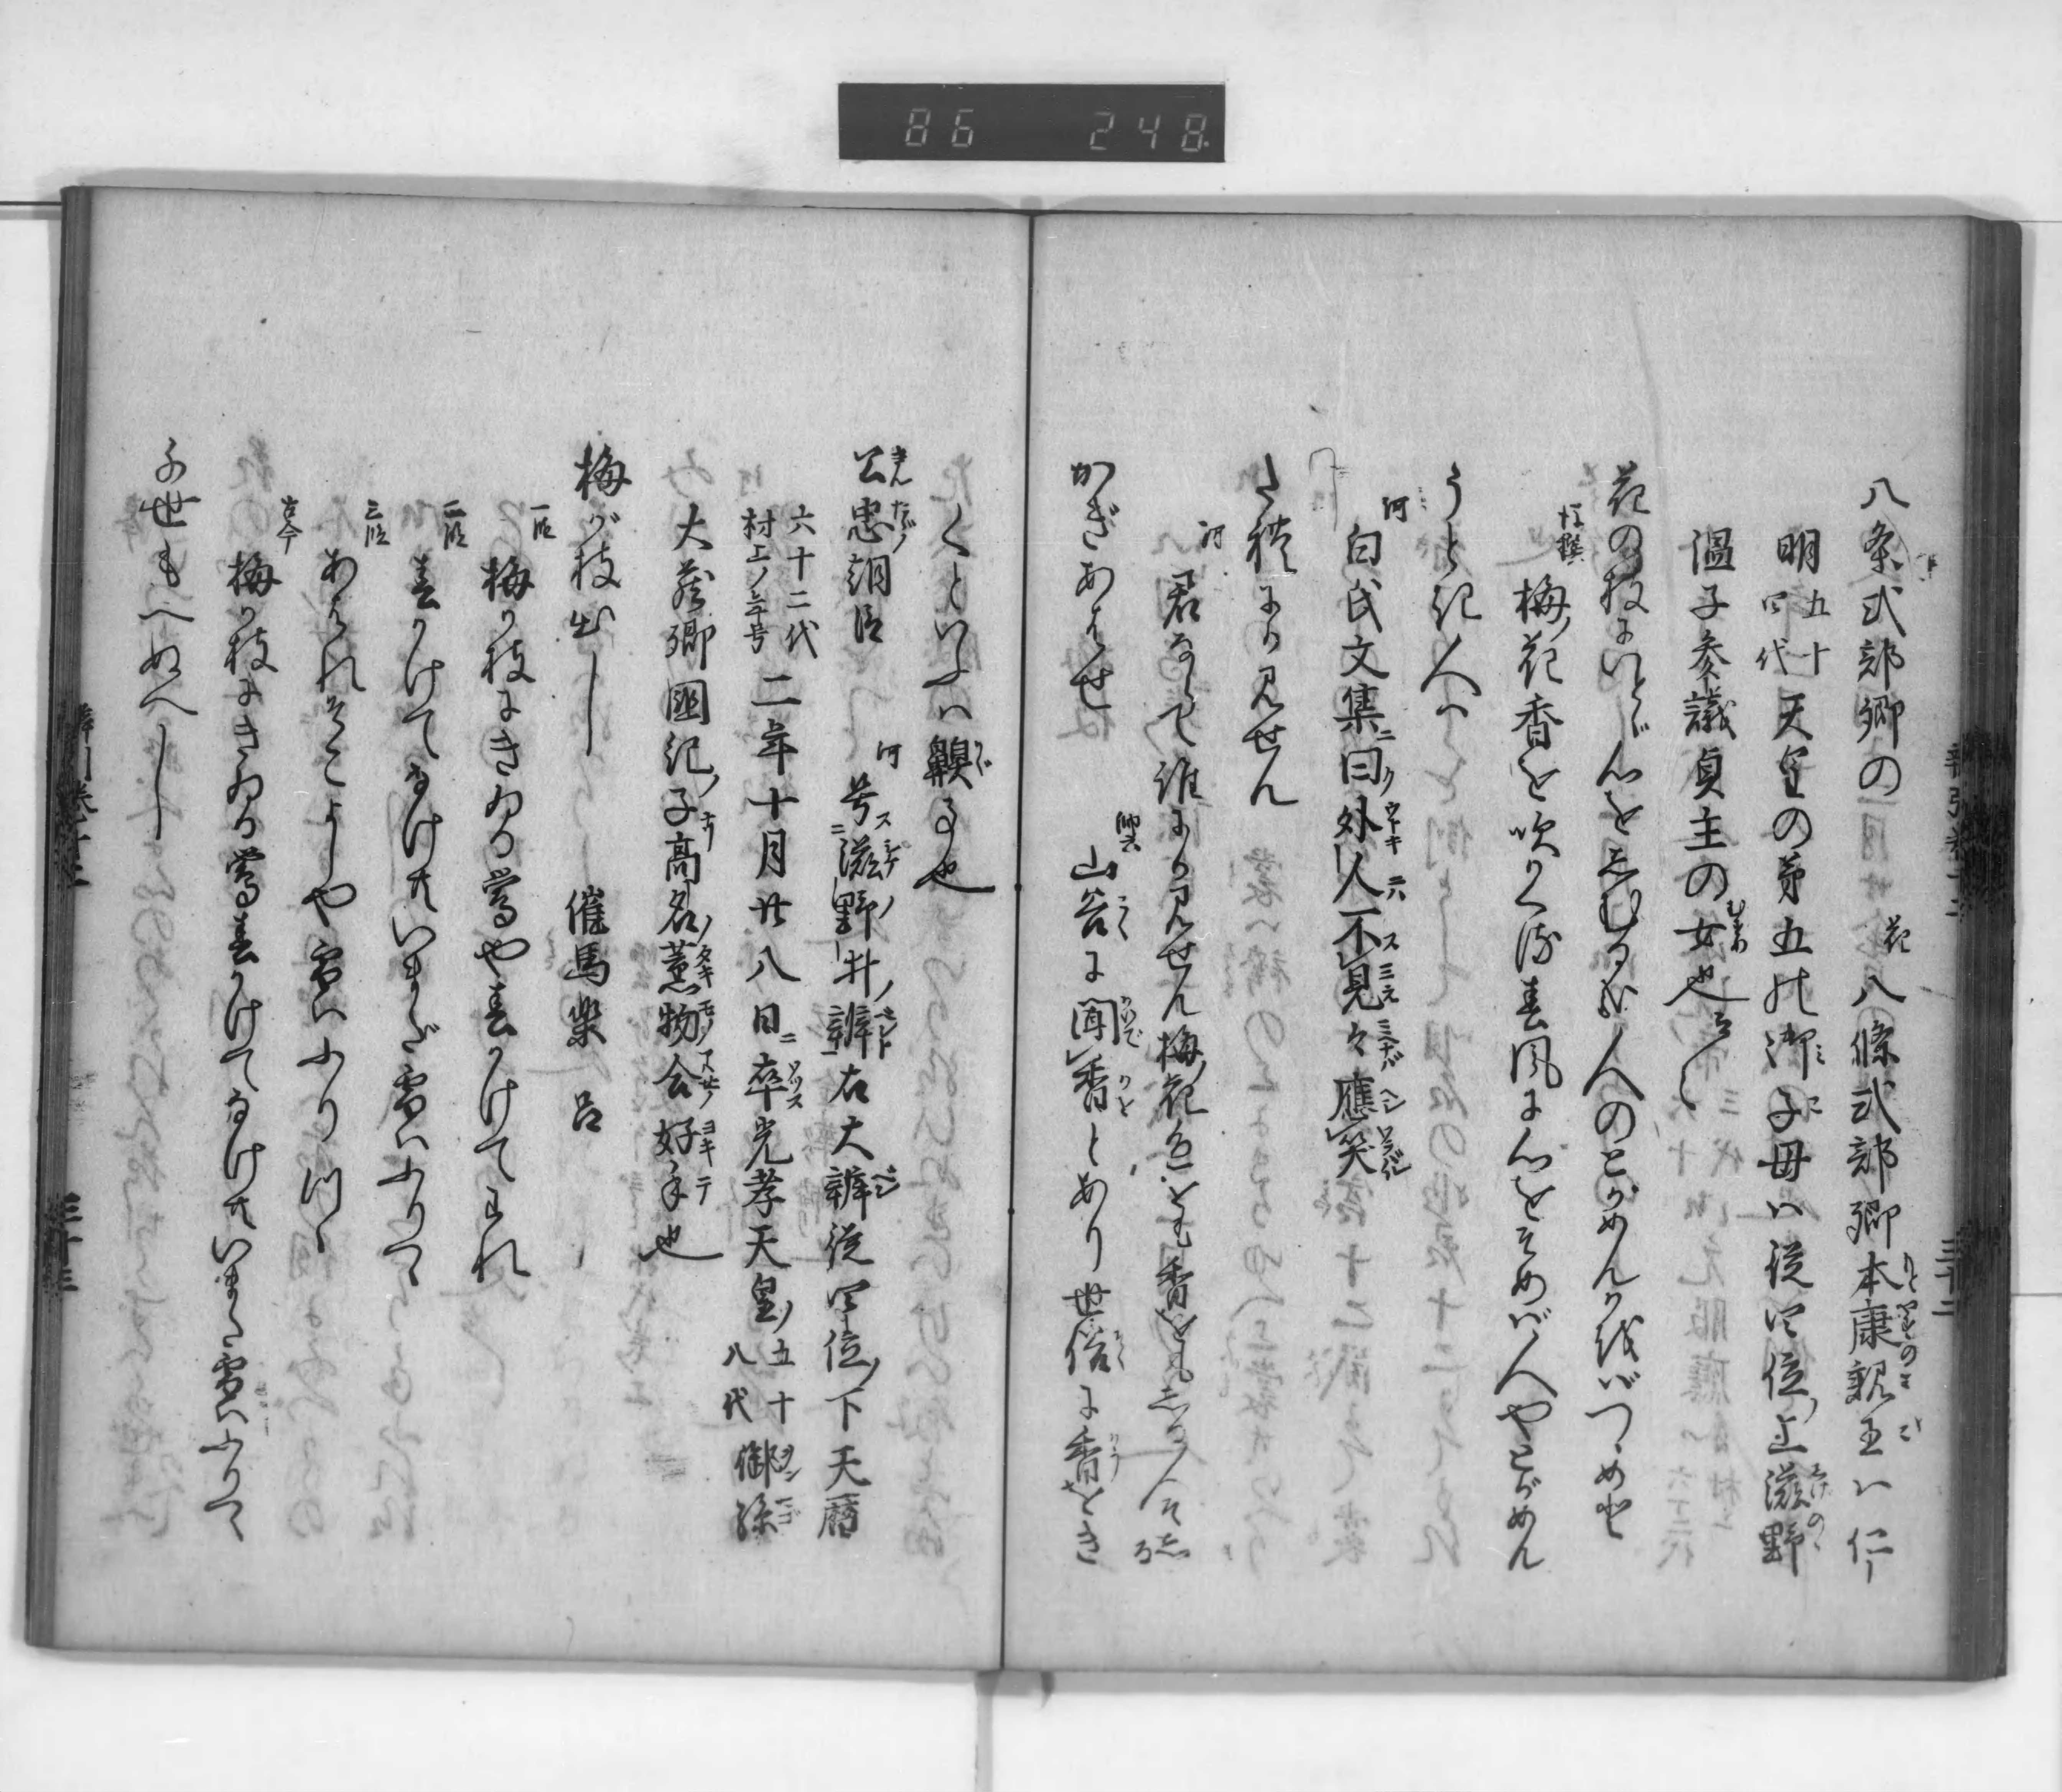 86 248
八条式部卿の 花 八條式部卿本康親王ハ仁
明五十四代天皇の第五の御子母ハ従四位上滋野
温子参議貞主の女也云々
花の枝にいとゞ心をしむるかな人のとがめん香をばつゝめど
後撰 梅ノ花香を吹かくる春風に心をそめば人やとがめん
うとき人へ
河 白氏文集ニ曰ク外人不見々應笑
たれにか見せん
河 君ならで誰にか見せん梅ノ花色をも香をもしる人ぞしる
かぎあはせ 師云 山谷に聞香とあり世俗に香をき
くといふハ齅事也
公忠朝臣 河 号滋野井辨右大辨従四位ノ下天暦
六十二代村上ノ年号二年十月廿八日ニ卒光孝天皇ノ五十八代御孫
大蔵卿國紀ノ子高名ノ薫物合好手也
梅が枝出し 催馬楽 呂
一段 梅が枝にきゐる鶯や春かけてはれ
二段 春かけてなけ共いまだ雪ハふりつゝ
三段 あはれそこよしや雪ハふりつゝ
古今 梅が枝にきゐる鶯春かけてなけ共いまだ雪ハふりつゝ
千世もへぬべし
三十二
三十三